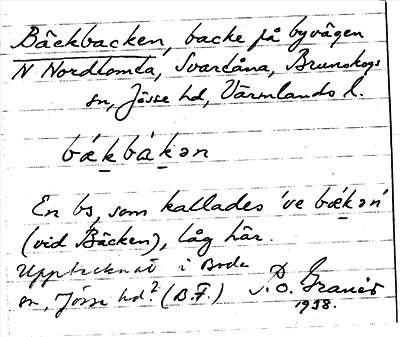 Bäckbacken, backe på byvägen
N Nordtomta, Svartåna, Brunskogs
sn, Jösse hd, Värmlands l.
bǽḵbáḵən
En bs, som kallades 've bǽḵən'
(vid Bäcken), låg här.
Upptecknat i Boda
sn, Jösse hd? (B.F.) P.O. Granér
1938.